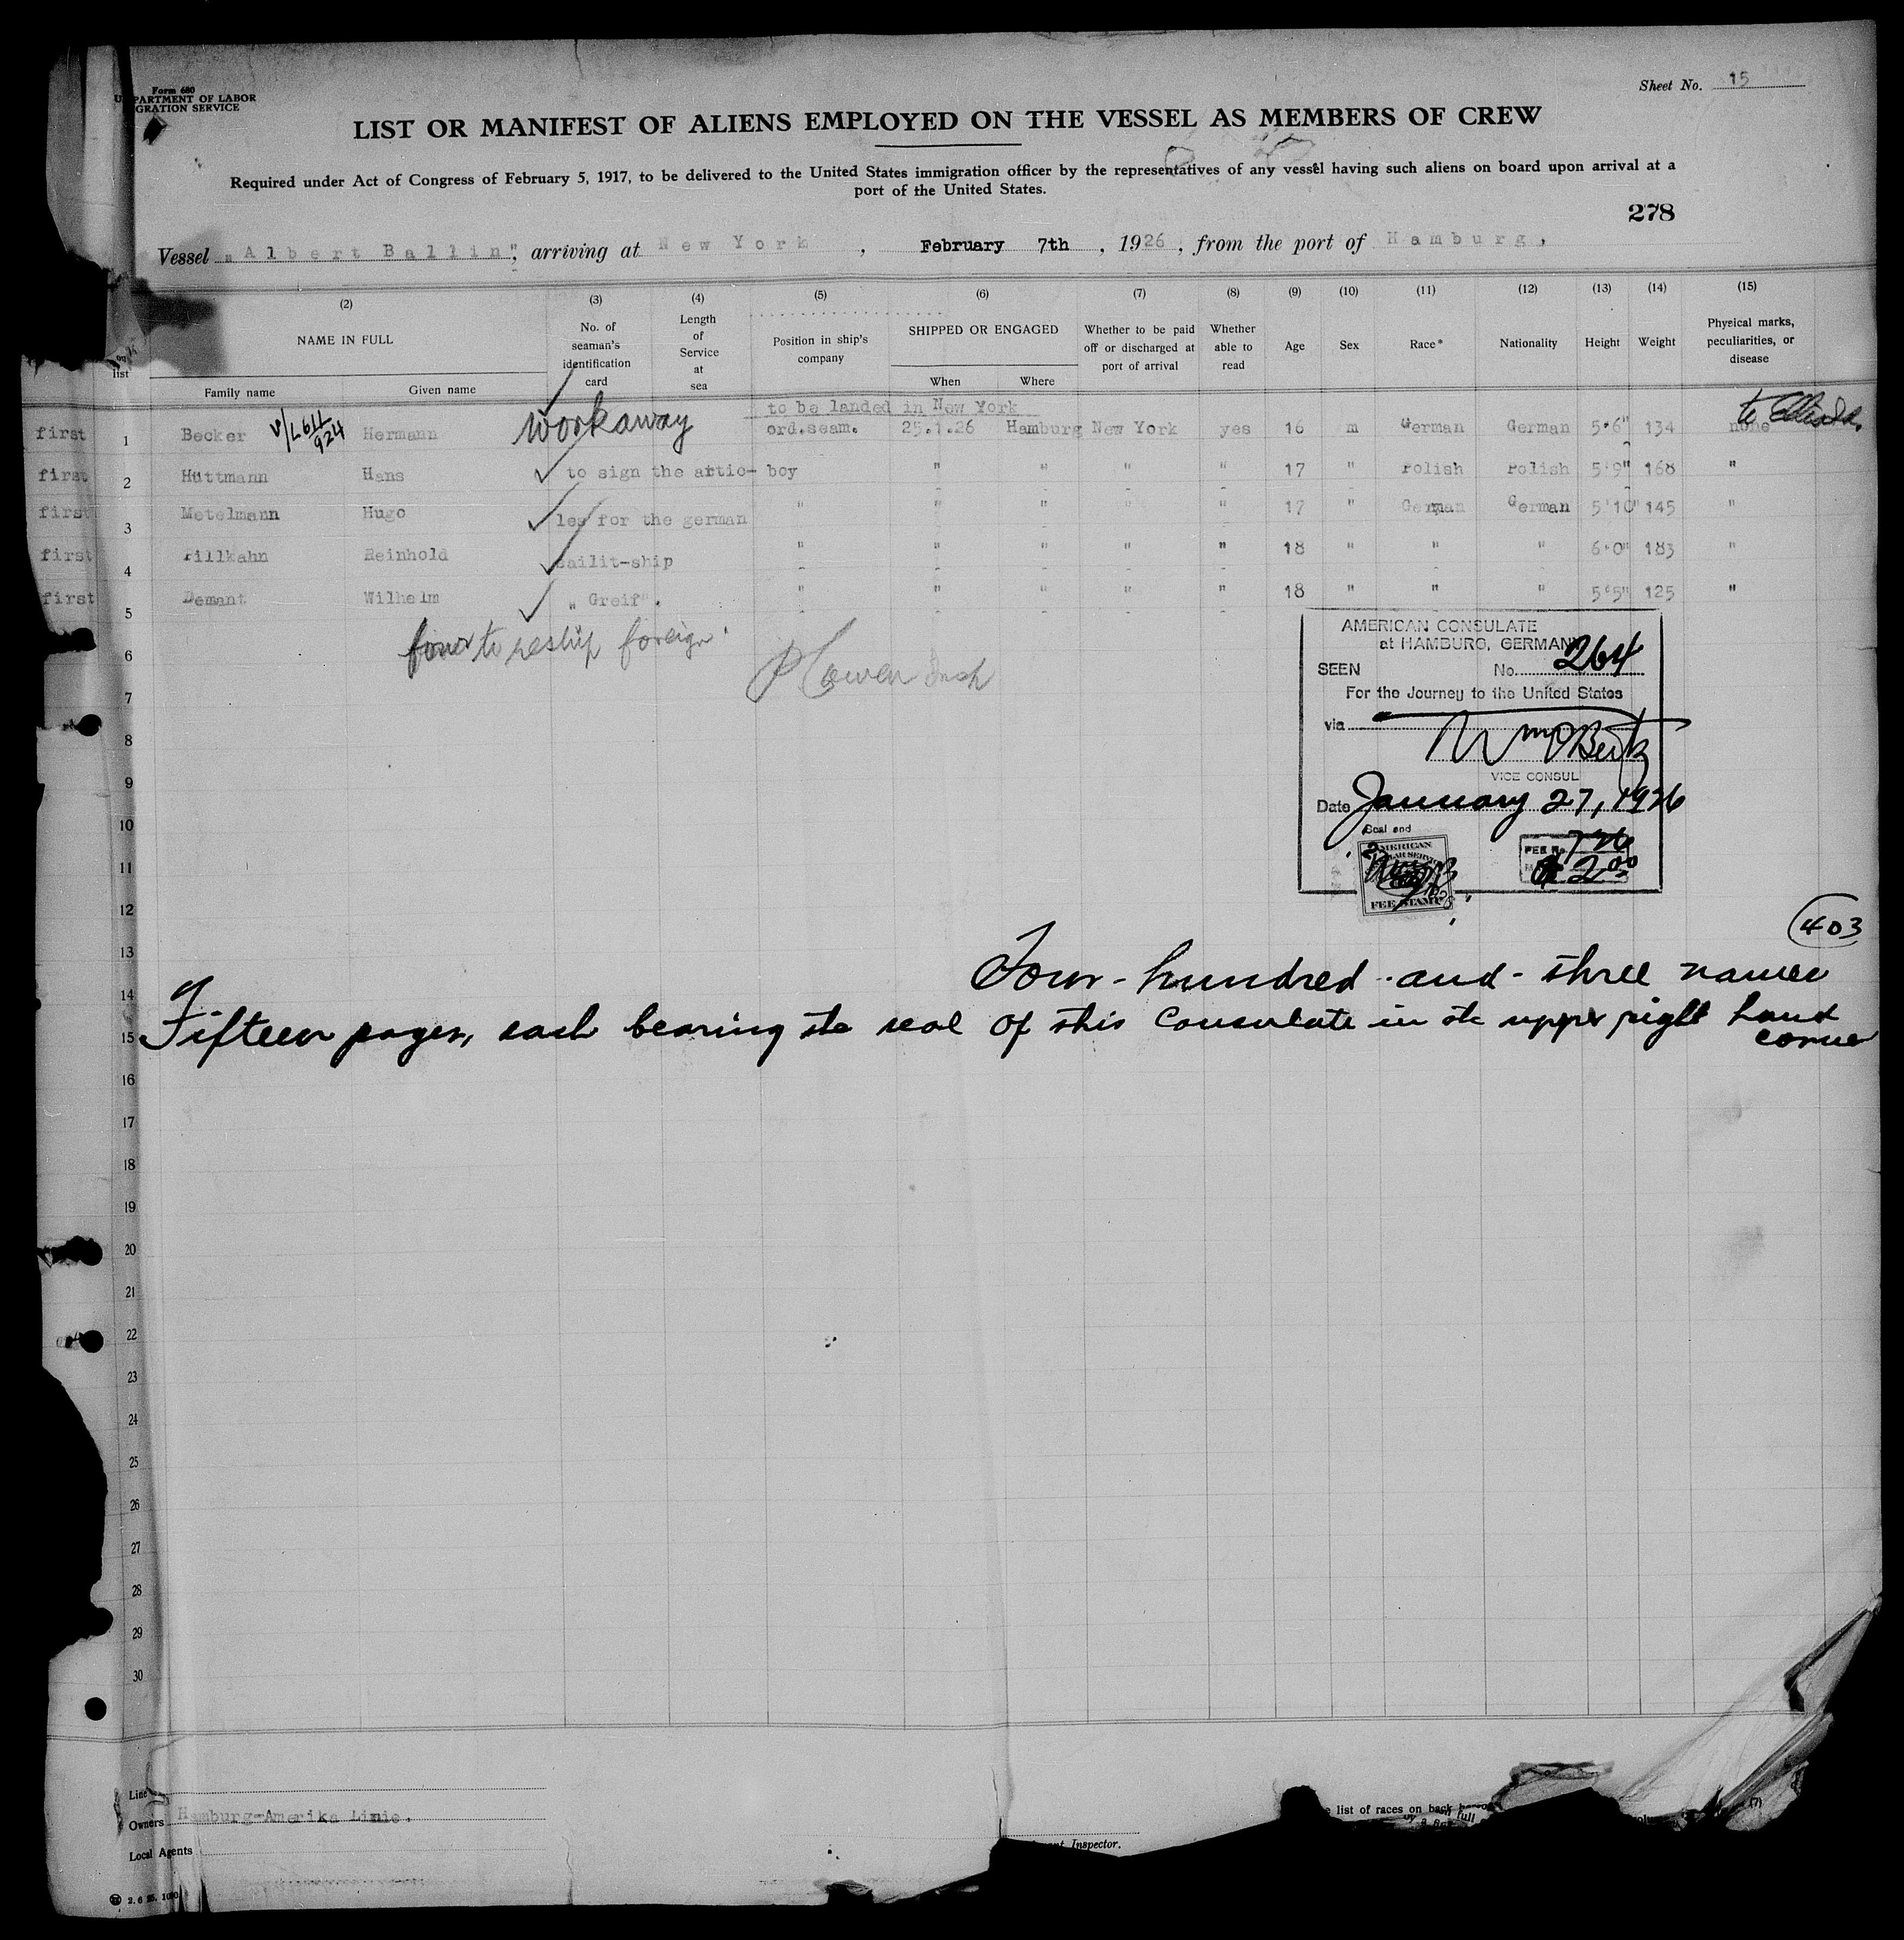 Form 680
DEPARTMENT OF LABOR
GRATION SERVICE
Sheet No. 15
LIST OR MANIFEST OF ALIENS EMPLOYED ON THE VESSEL AS MEMBERS OF CREW
Required under Act of Congress of February 5, 1917, to be delivered to the United States immigration officer by the representatives of any vessel having such aliens on board upon arrival at a
port of the United States.
278
Vessel „Albert Ballin", arriving at New York, February 7th, 1926, from the port of Hamburg,
(2) (3) (4) (5) (6) (7) (8) (9) (10) (11) (12) (13) (14) (15)
list NAME IN FULL No. of seaman's identification card Length of Service at sea Position in ship's company SHIPPED OR ENGAGED Whether to be paid off or discharged at port of arrival Whether able to read Age Sex Race* Nationality Height Weight Physical marks, peculiarities, or disease
Family name Given name When Where
to be landed in New York
first 1 Becker Hermann workaway ord.seam. 25.1.26 Hamburg New York yes 16 m German German 5'6" 134 none
first 2 Hüttmann Hans to sign the artic- boy " " " " 17 " Polish Polish 5'9" 168 "
first 3 Metelmann Hugo les for the german " " " " " 17 " German German 5'10" 145 "
first 4 Pillkahn Reinhold sailit-ship " " " " " 18 " " " 6'0" 183 "
first 5 Demant Wilhelm „Greif". " " " " " 18 " " " 5'5" 125 "
four to reship foreign
6
7
8
9
10
11
12
13
14
15
AMERICAN CONSULATE
at HAMBURG, GERMANY
SEEN No. 264
For the Journey to the United States
via
VICE CONSUL
Date January 27, 1926
Seal and
AMERICAN
FEE STAMP
FEE No. 726
$2.00
403
Four-hundred-and-three names
Fifteen pages, each bearing the seal of this Consulate in the upper right hand
corner
16
17
18
19
20
21
22
23
24
25
26
27
28
29
30
Line
Owners Hamburg-Amerika Linie.
Local Agents
Inspector.
list of races on back
full
(7)